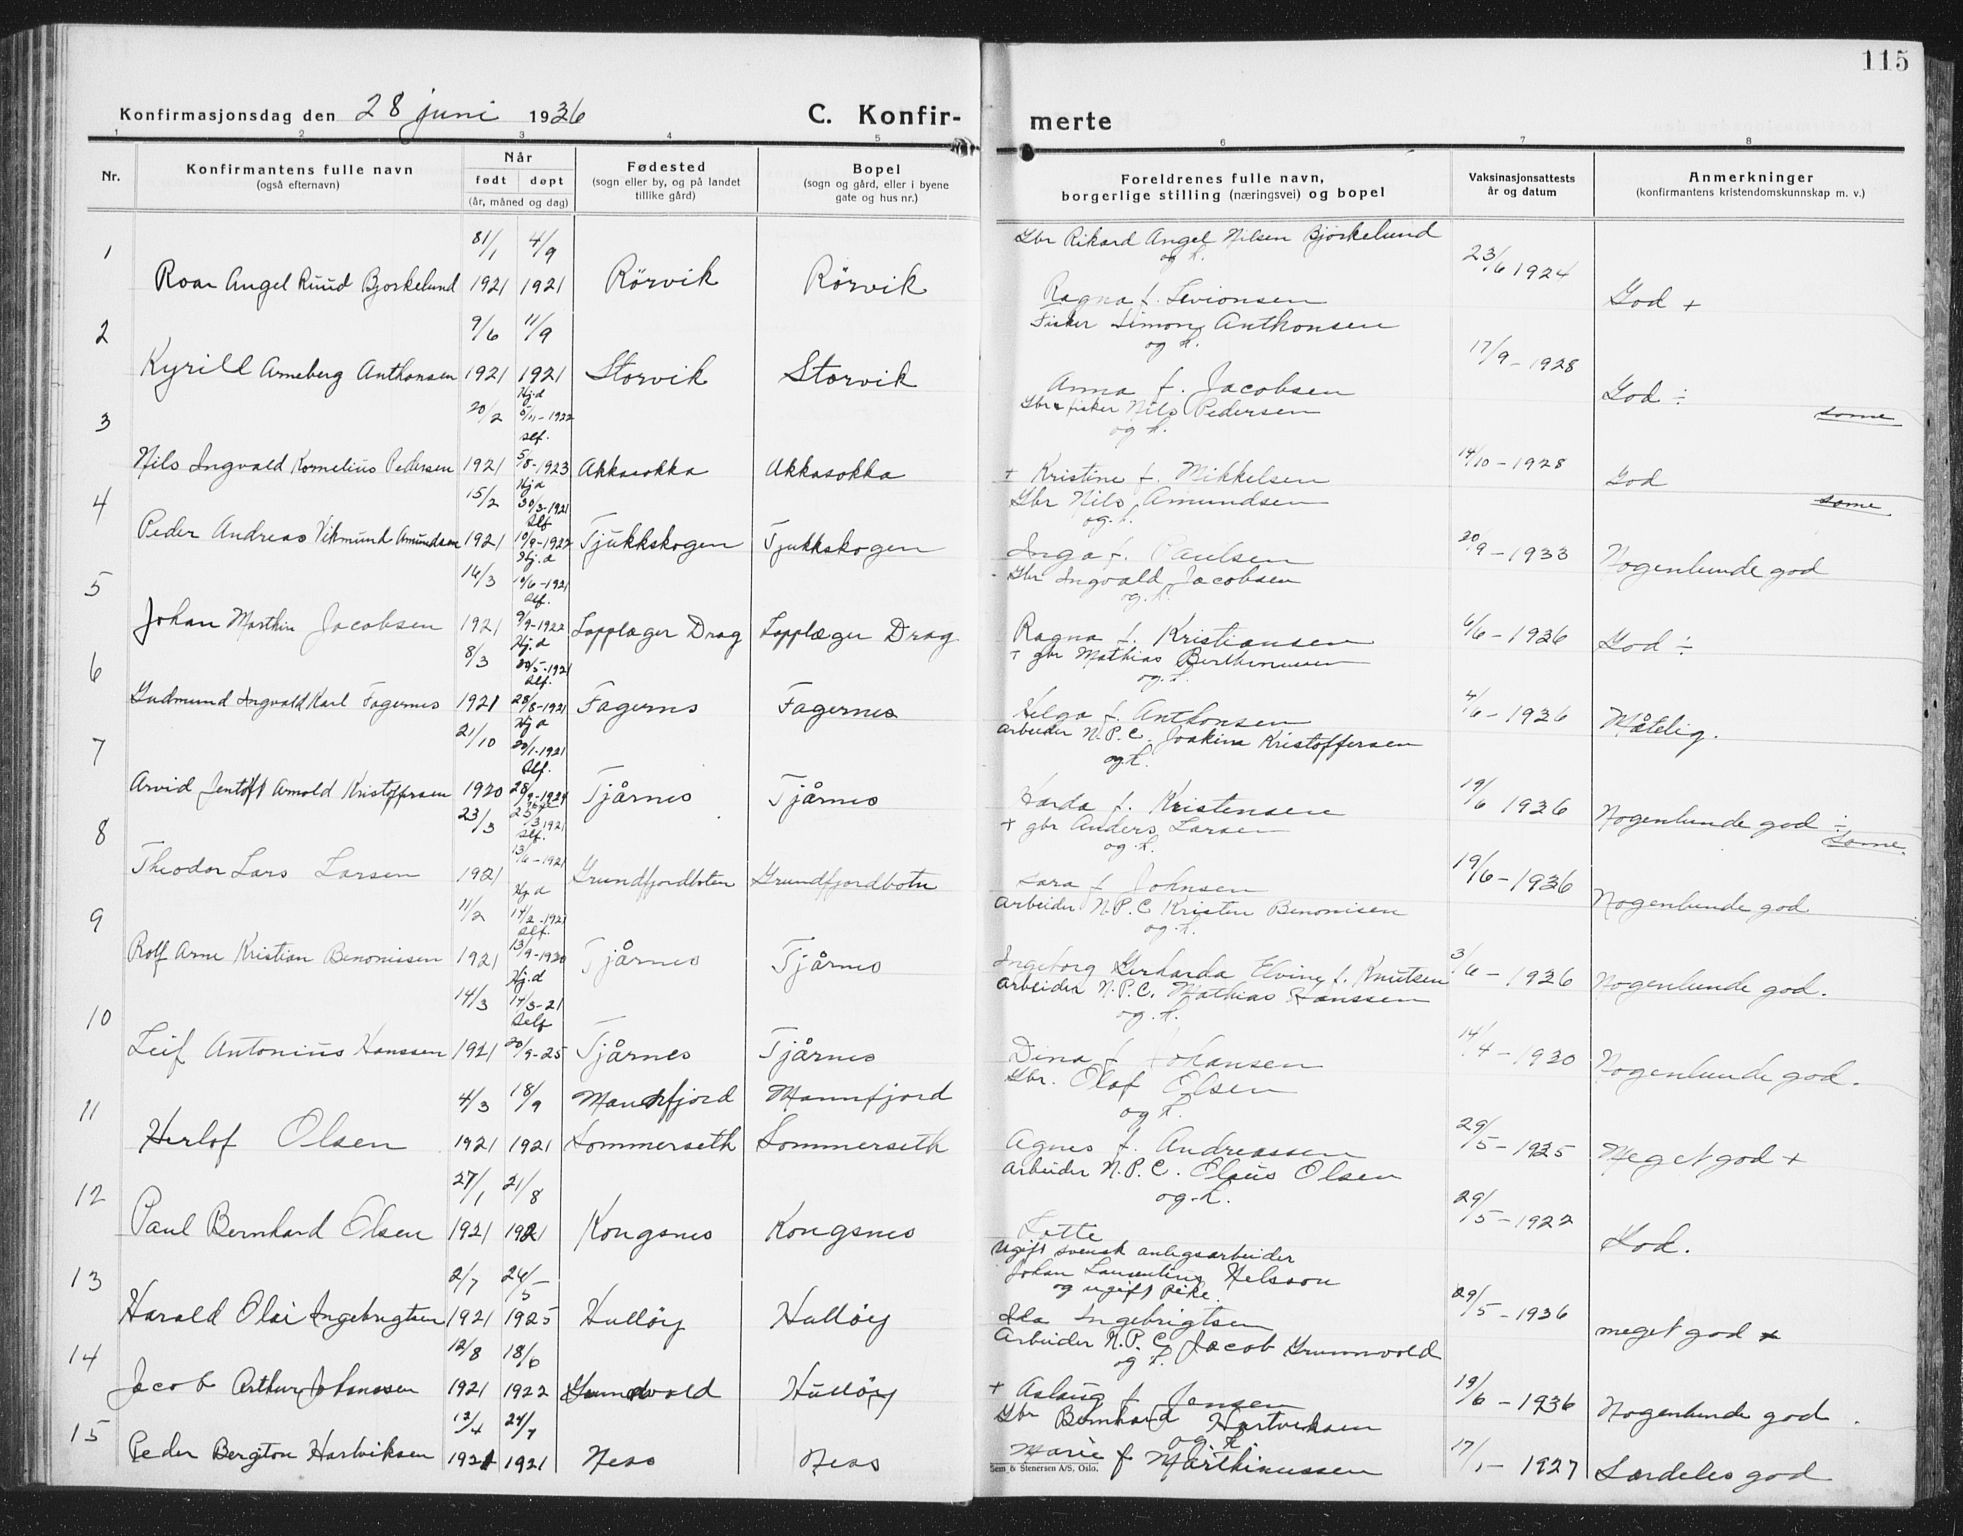 115
Konfirmasjonsdag den 28 juni 1936
C. Konfir-
merte
1 2 3 4 5 6 7 8
Nr.
Konfirmantens fulle navn
(også efternavn)
Når
født døpt
(år, måned og dag)
Fødested
(sogn eller by, og på landet
tillike gård)
Bopel
(sogn og gård, eller i byene
gate og hus nr.)
Foreldrenes fulle navn,
borgerlige stilling (næringsvei) og bopel
Vaksinasjonsattests
år og datum
Anmerkninger
(konfirmantens kristendomskunnskap m. v.)
1 31/1 4/9 Gbr Rikard Angel Nilsen Bjørkelund
og h. 23/6 1924
Roar Angel Ruud Bjorkelund 1921 1921 Rörvik Rörvik Ragna f. Sevionsen God +
2 9/6 11/9 Fisker Simon Anthonsen
og h. 17/9 - 1928
Kyrill Arneberg Anthonsen 1921 1921 Storvik Storvik Anna f. Jacobsen God ÷
3 20/2 Hj.d 5/11-1922 slf. Gbr & fisker Nils Pedersen same
og h. 14/10 - 1928
Nils Ingvald Kornelius Pedersen 1921 5/8-1923 Akkasokka Akkasokka + Kristine f. Mikkelsen God
4 15/2 Hjd 30/3-1921 Slf Gbr Nils Amundsen same
og h. 20/9 - 1933
Peder Andreas Vikmund Amundsen 1921 10/9-1922 Tjukkskogen Tjukkskogen Inga f. Paulsen Nogenlunde god
5 16/3 Hj.d 10/6-1921 Slf. Gbr Ingvald Jacobsen
og h. 6/6 - 1936
Johan Marthin Jacobsen 1921 9/9-1922 Lapplæger Drag Lapplæger Drag Ragna f. Kristiansen God ÷
6 8/3 Hj.d 20/5-1921 Slf. + gbr Mathias Berthinussen
og h. 4/6 - 1936
Gudmund Ingvald Karl Fagernes 1921 28/8-1921 Fagernes Fagernes Helga f. Anthonsen Måtelig.
7 21/10 Hjd 20/1-1921 Slf. arbeider N.P.C. Joakim Kristoffersen
og h. 19/6 1936
Arvid Jentoft Arnold Kristoffersen 1920 28/9-1924 Tjårnes Tjårnes Harda f. Kristensen Nogenlunde god ÷
8 23/3 23/3 1921 Slf. + gbr Anders Larsen same
og h. 19/6 - 1936
Theodor Lars Larsen 1921 13/6-1921 Grundfjordboten Grundfjordbotn Sara f Johnsen Nogenlunde god
9 11/2 Hj.d 14/2-1921 Slf. arbeider N.P.C Kristen Benonisen
og h. 3/6 - 1936
Rolf Arne Kristian Benonissen 1921 13/9-1920 Tjårnes Tjårnes Ingeborg Gerharda Elvine f. Knutsen Nogenlunde god.
10 14/3 Hj.d 14/3-21 Self arbeider N.P.C. Mathias Hanssen
og h. 14/4 - 1930
Leif Antonius Hanssen 1921 20/9-25 Tjårnes Tjårnes Dina f Johansen Nogenlunde god.
11 4/3 18/9 Mannfjord Mannfjord Gbr. Olaf Elsen
og h. 29/5 - 1935
Herlof Olsen 1921 1921 Sommerseth Sommerseth Agnes f. Andreassen Meget god +
12 27/1 21/8 arbeider N.P.C. Olaus Olsen
og h. 29/5 - 1922
Paul Bernhard Elsen 1921 1921 Kongsnes Kongsnes Lotte God.
13 2/7 24/5 Ugift svensk anlegsarbeider
Johan Laurentius Nelsson
og ugift pike. 29/5 - 1936
Harald Olai Ingebrigtsen 1921 1925 Hulløy Hulløy Ida Ingebrigtsen meget god +
14 12/8 18/6 Arbeider N.P.C Jacob Grunnvold
og h. 19/6 - 1936
Jacob Arthur Johanssen 1921 1922 Grundvold Hulløy + Aslaug f Jensen Nogenlunde god.
15 13/4 24/7 Gbr Bernhard Hartviksen
og h.
Peder Bergiton Hartviksen 1921 1921 Ness Ness Marie f Marthinussen 17/1 - 1927 Særdeles god
Sem & Stenersen A/S, Oslo.